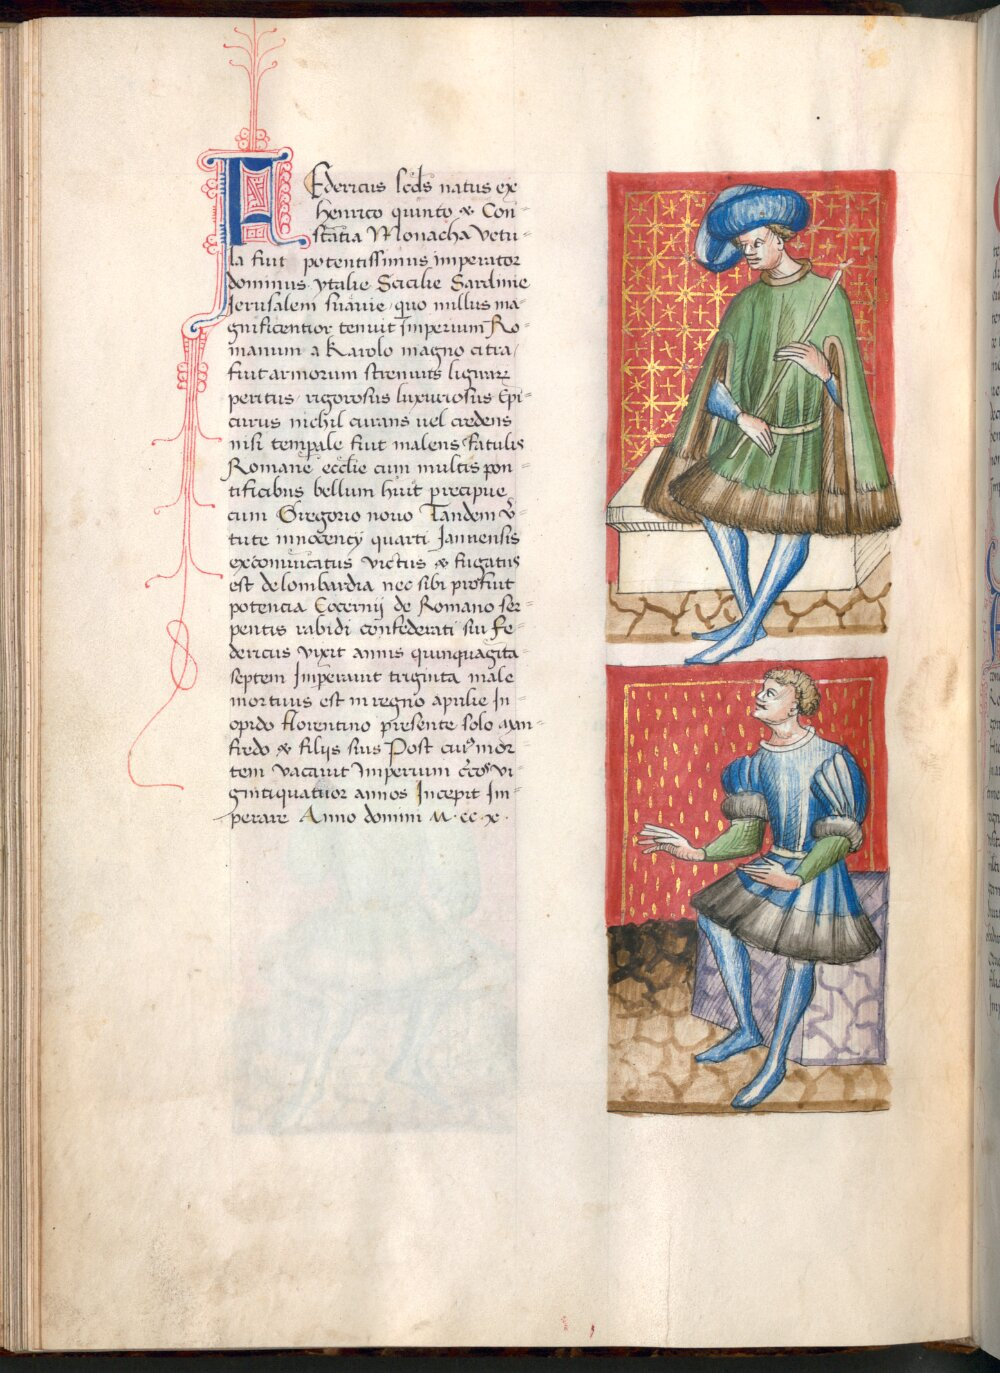 FEdericus scds natus ex
henrico quinto & Con-
stātia Monacha vetu-
la fuit potentissimus imperator
dominus ytalie Scicilie Sardinie
Jerusalem suauie quo nullus ma-
gnificentior tenuit imperium Ro-
manum a Karolo magno citra/
fuit armorum strenuus liguarz
peritus rigorosus luxuriosus Epi-
curus nichil curans uel credens
nisi tempale fuit malens
Romane ecclie cum multis pon-
tificibus bellum huit precipue
cum Gregorio nono Tandem
tute innocency quarti Jannensis
excōmūicatus victus & fugatus
est de lombardia nec sibi profuit
potencia Eccernij de Romano ser-
pentis rabidi confederati sui Fe-
dericus vixit annis quinquagīta
septem Imperauit triginta male
mortuus est in regno apulie In
opido florentino presente solo man-
fredo & filijs suis Post cuiꝰ mor
tem vacauit Imperium vi-
gintiquatuor annos Incepit Im-
perare Anno domini M·cc·x·